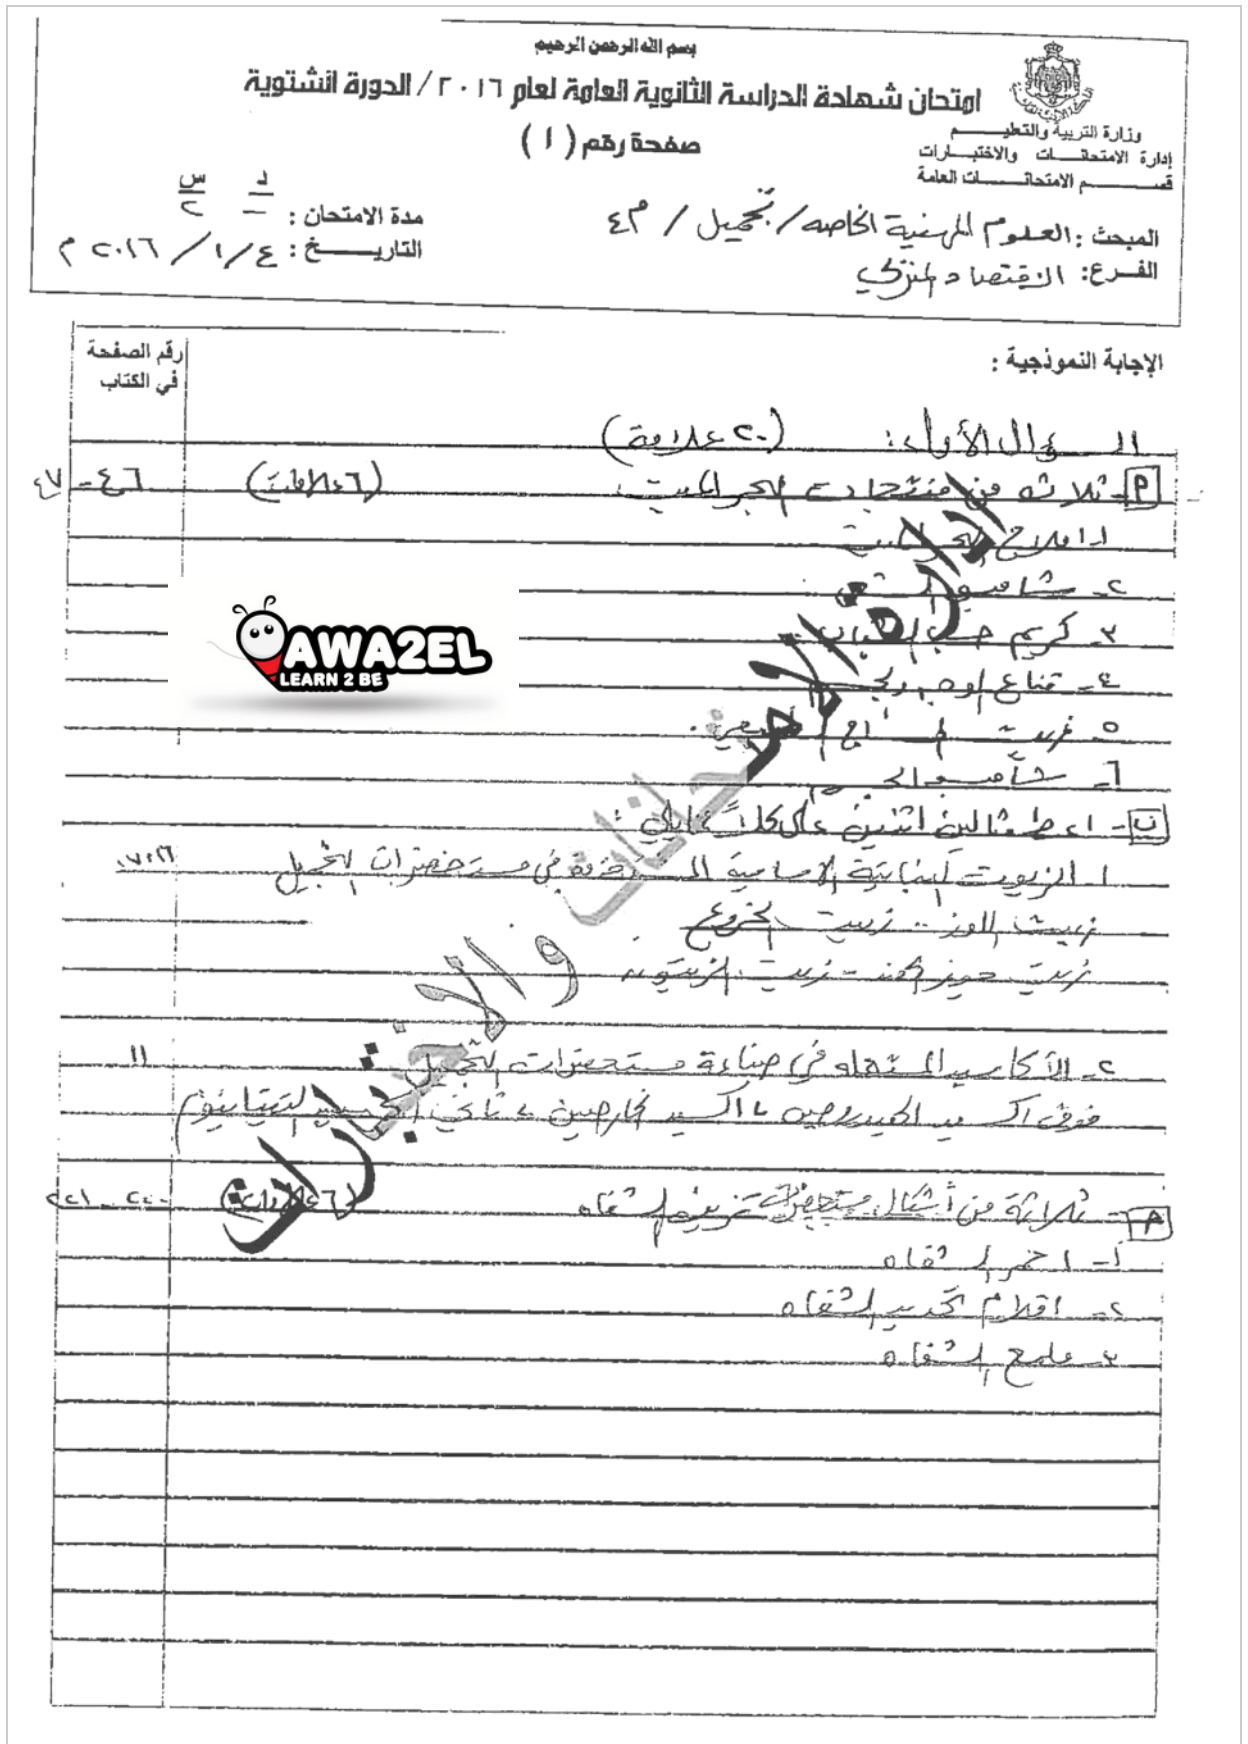 بسم الله الرحمن الرحيم
امتحان شهادة الدراسة الثانوية العامة لعام ٢٠١٦ / الدورة الشتوية
صفحة رقم ( ١ )
وزارة التربية والتعليم
إدارة الامتحانات والاختبارات
قسم الامتحانات العامة
المبحث : العلوم المهنية الخاصه / تجميل / م٤
مدة الامتحان : د س
— ٢
الفرع: الاقتصاد المنزلي
التاريخ : ٤ / ١ / ٢٠١٦ م
الإجابة النموذجية :
رقم الصفحة في الكتاب
السؤال الأول : (٢٠ علامة)
أ - ثلاثه من منتجات البحر الميت (٦ علامات) ٤٦ - ٤٧
١- املاح البحر الميت
٢- شامبو الشعر
٣- كريم حب الشباب
٤- قناع الوجه
٥- زيت المساج الطبيعي .
٦- شامبو
ب - اعط مثالين اثنين على كل مما يلي :
١- الزيوت النباتية الاساسية المستخدمه في مستحضرات التجميل ١٦، ١٧
زيت اللوز - زيت الخروع
زيت جوز الهند - زيت الزيتون
٢- الأكاسيد المستعمله في صناعة مستحضرات التجميل ١١
فوق اكسيد الهيدروجين ، اكسيد الخارصين ، ثاني اكسيد التيتانيوم
ج - ثلاثة من أشكال مستحضرات تزيين الشفاه (٦ علامات) ٢٢٠ - ٢٢١
١- احمر الشفاه
٢- اقلام تحديد الشفاه
٣- ملمع الشفاه
AWA2EL
LEARN 2 BE
إدارة الامتحانات والاختبارات